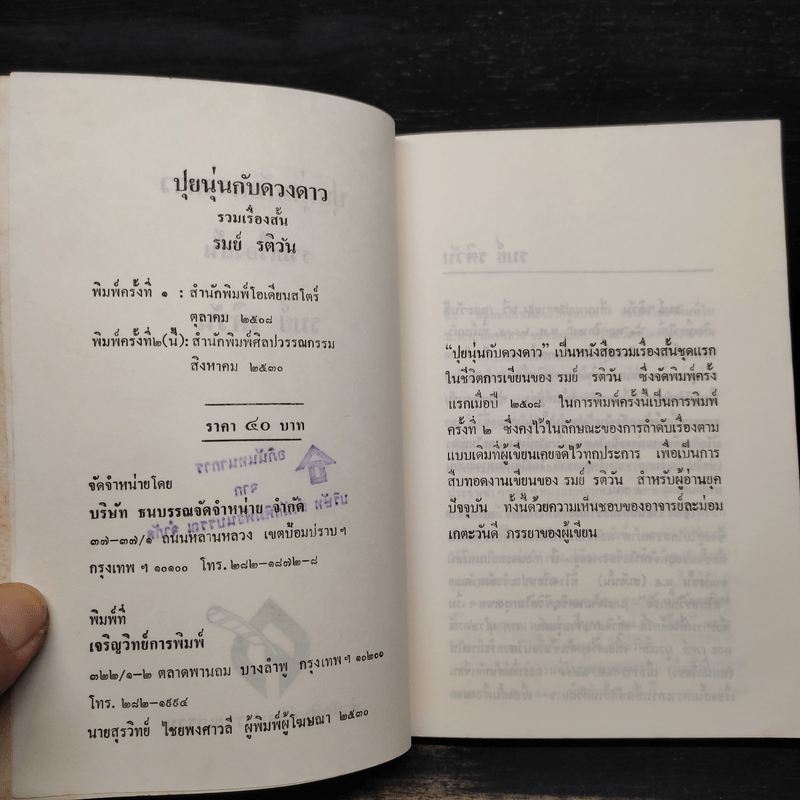 ปุยนุ่นกับดวงดาว
รวมเรื่องสั้น
รมย์ รติวัน
พิมพ์ครั้งที่ ๑ : สำนักพิมพ์โอเดียนสโตร์
ตุลาคม ๒๕๐๘
พิมพ์ครั้งที่๒(นี้): สำนักพิมพ์ศิลปวรรณกรรม
สิงหาคม ๒๕๓๐
ราคา ๔๐ บาท
อภินันทนาการ
จาก
บริษัท
จัดจำหน่ายโดย
บริษัท ธนบรรณจัดจำหน่าย จำกัด
๓๗-๓๗/๑ ถนนหลานหลวง เขตป้อมปราบฯ
กรุงเทพ ฯ ๑๐๑๐๐ โทร. ๒๘๒-๑๘๗๒-๘
พิมพ์ที่
เจริญวิทย์การพิมพ์
๓๒๒/๑-๒ ตลาดพานถม บางลำพู กรุงเทพฯ ๑๐๒๐๐
โทร. ๒๘๒-๑๙๙๔
นายสุรวิทย์ ไชยพงศาวลี ผู้พิมพ์ผู้โฆษณา ๒๕๓๐
รมย์ รติวัน
“ปุยนุ่นกับดวงดาว” เป็นหนังสือรวมเรื่องสั้นชุดแรก
ในชีวิตการเขียนของ รมย์ รติวัน ซึ่งจัดพิมพ์ครั้ง
แรกเมื่อปี ๒๕๐๘ ในการพิมพ์ครั้งนี้เป็นการพิมพ์
ครั้งที่ ๒ ซึ่งคงไว้ในลักษณะของการลำดับเรื่องตาม
แบบเดิมที่ผู้เขียนเคยจัดไว้ทุกประการ เพื่อเป็นการ
สืบทอดงานเขียนของ รมย์ รติวัน สำหรับผู้อ่านยุค
ปัจจุบัน ทั้งนี้ด้วยความเห็นชอบของอาจารย์ละม่อม
เกตะวันดี ภรรยาของผู้เขียน